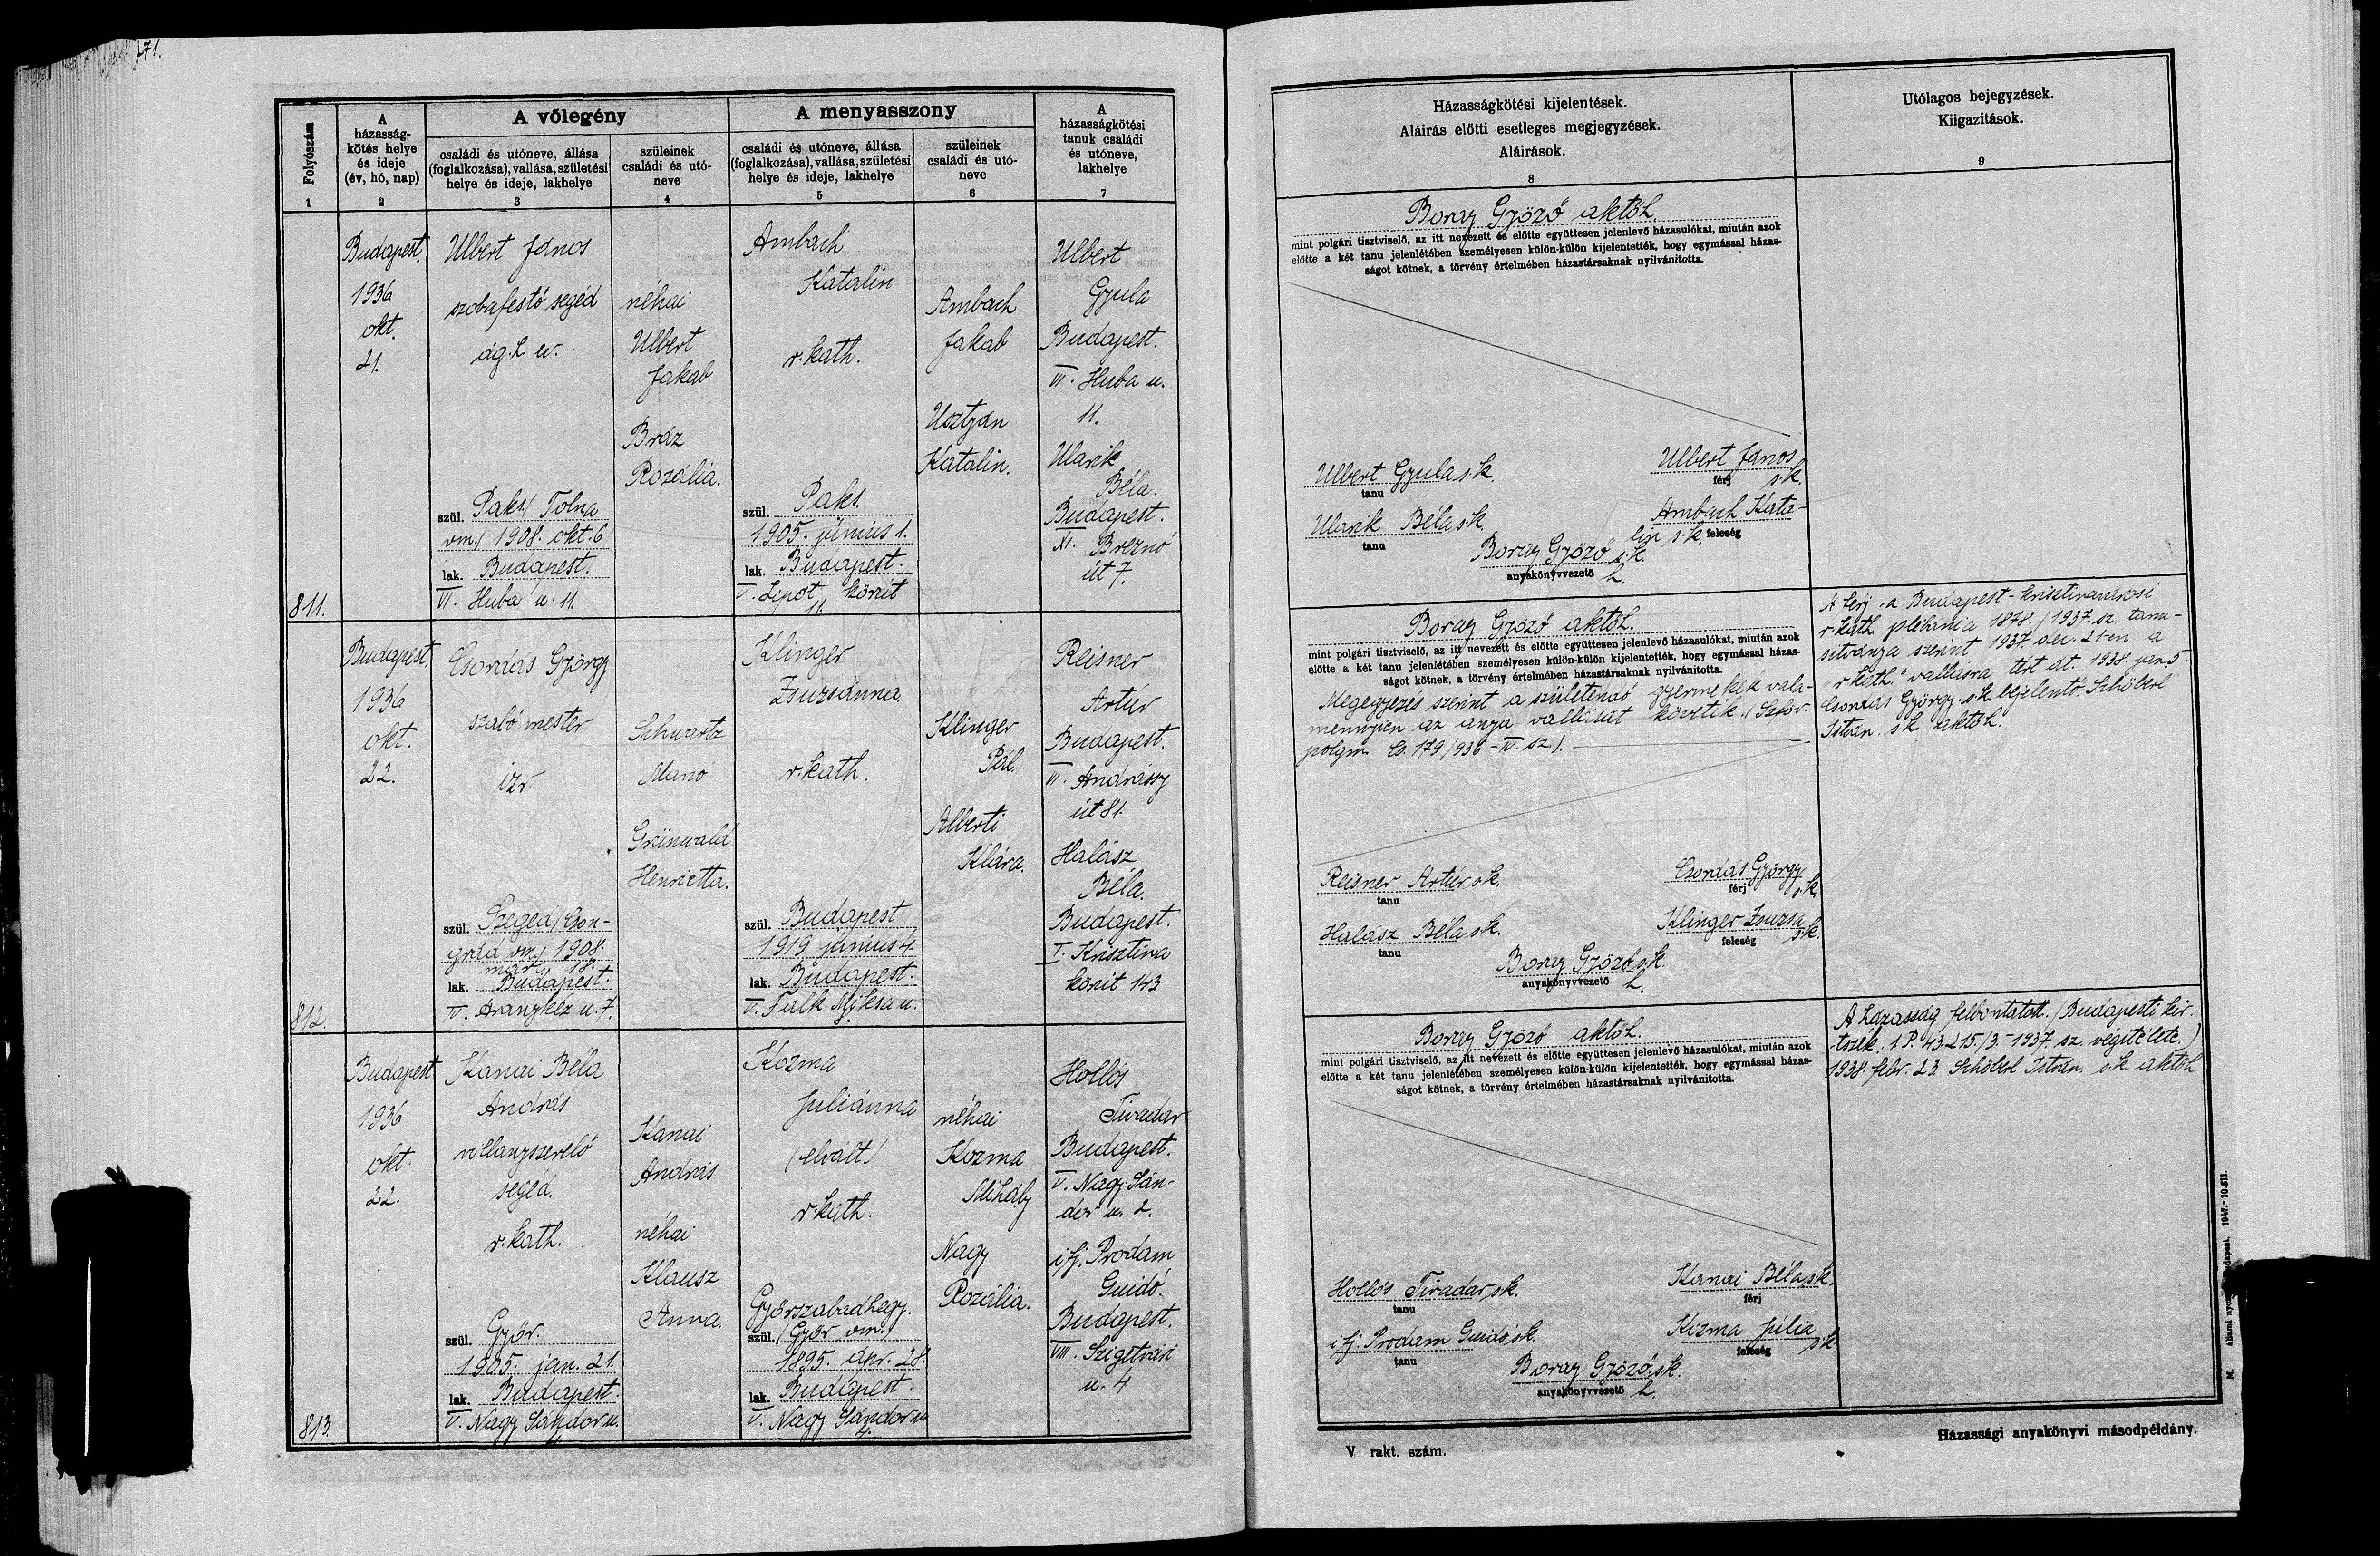 71.
Folyószám
A
házasság-
kötés helye
és ideje
(év, hó, nap)
A vőlegény
családi és utóneve, állása
(foglalkozása), vallása, születési
helye és ideje, lakhelye
szüleinek
családi és utó-
neve
A menyasszony
családi és utóneve, állása
(foglalkozása), vallása, születési
helye és ideje, lakhelye
szüleinek
családi és utó-
neve
A
házasságkötési
tanuk családi
és utóneve,
lakhelye
1 2 3 4 5 6 7
811.
Budapest.
1936
okt.
21.
Ulbert János
szobafestő segéd
ág. h. ev.
szül. Paks / Tolna
vm./ 1908. okt. 6
lak. Budapest.
VI. Huba u. 11.
néhai
Ulbert
Jakab
Bráz
Rozália.
Ambach
Katalin
r. kath.
szül. Paks.
1905. június 1.
lak. Budapest.
V. Lipót körút
11.
Ambach
Jakab
Usztyán
Katalin.
Ulbert
Gyula
Budapest.
VI. Huba u.
11.
Ularik
Béla.
Budapest.
XI. Breznó
út 7.
812.
Budapest,
1936
okt.
22.
Csordás György
szabó mester
izr
szül. Szeged / Cson-
grád vm./ 1908.
már. 18.
lak. Budapest.
IV. Aranykéz u. 7.
Schwartz
Manó
Grünwald
Henrietta.
Klinger
Zsuzsánna
r. kath.
szül. Budapest
1919 június 4.
lak. Budapest.
V. Falk Miksa u.
Klinger
Pál.
Alberti
Klára.
Reisner
Artúr
Budapest.
VI. Andrássy
út 81.
Halász
Béla.
Budapest.
I. Krisztina
körút 143
813.
Budapest
1936
okt.
22.
Kanai Béla
András
villanyszerelő
segéd.
r. kath.
szül. Győr.
1905. jan. 21.
lak. Budapest.
V. Nagy Sándor u.
4.
Kanai
András
néhai
Klausz
Anna.
Kozma
Juliánna
(elvált)
r. kath.
Győrszabadhegy.
szül. / Győr vm./
1895. ápr. 28.
lak. Budapest.
V. Nagy Sándor u
4.
néhai
Kozma
Mihály
Nagy
Rozália.
Hollós
Tivadar
Budapest.
V. Nagy Sán-
dor u. 2.
ifj. Prodam
Guidó.
Budapest.
VIII. Szigetvári
u. 4
Házasságkötési kijelentések.
Aláírás előtti esetleges megjegyzések.
Aláírások.
8
Utólagos bejegyzések.
Kiigazítások.
9
Boray Győző aktőh.
mint polgári tisztviselő, az itt nevezett és előtte együttesen jelenlevő házasulókat, miután azok
előtte a két tanu jelenlétében személyesen külön-külön kijelentették, hogy egymással házas-
ságot kötnek, a törvény értelmében házastársaknak nyilvánította.
Ulbert Gyula s.k.
tanu
Ulbert János
s.k.
férj
Ularik Béla s.k.
tanu
Ambach Kata-
lin s.k. feleség
Boray Győző s.k.
anyakönyvvezető h.
Boray Győző aktőh.
mint polgári tisztviselő, az itt nevezett és előtte együttesen jelenlevő házasulókat, miután azok
előtte a két tanu jelenlétében személyesen külön-külön kijelentették, hogy egymással házas-
ságot kötnek, a törvény értelmében házastársaknak nyilvánította.
Megegyezés szerint a születendő gyermekek vala-
mennyien az anya vallását követik. (Szfőv.
polgm. 179/936-IV. sz.).
Reisner Artúr s.k.
tanu
Csordás György
s.k.
férj
Halász Béla s.k.
tanu
Klinger Zsuzsa
s.k.
feleség
Boray Győző s.k.
anyakönyvvezető h.
A férj a Budapest-krisztinavárosi
r. kath. plébánia 1878./1937. sz. tanu-
sítványa szerint 1937. dec. 21-én a
"r. kath." vallásra tért át. 1938. jan. 5.
Csordás György s.k. bejelentő. Schöberl
István. s.k. aktőh.
Boray Győző aktőh.
mint polgári tisztviselő, az itt nevezett és előtte együttesen jelenlevő házasulókat, miután azok
előtte a két tanu jelenlétében személyesen külön-külön kijelentették, hogy egymással házas-
ságot kötnek, a törvény értelmében házastársaknak nyilvánította.
Hollós Tivadar s.k.
tanu
Kanai Béla s.k.
férj
ifj. Prodam Guidó s.k.
tanu
Kozma Júlia
s.k.
feleség
Boray Győző s.k.
anyakönyvvezető h.
A házasság felbontatott. (Budapesti kir.
tszék. 1 P. 43215/3.-1937. sz. végitélete.)
1938. febr. 23. Schöberl István. s.k. aktőh.
V rakt. szám.
Házassági anyakönyvi másodpéldány.
1947. - 10.611.